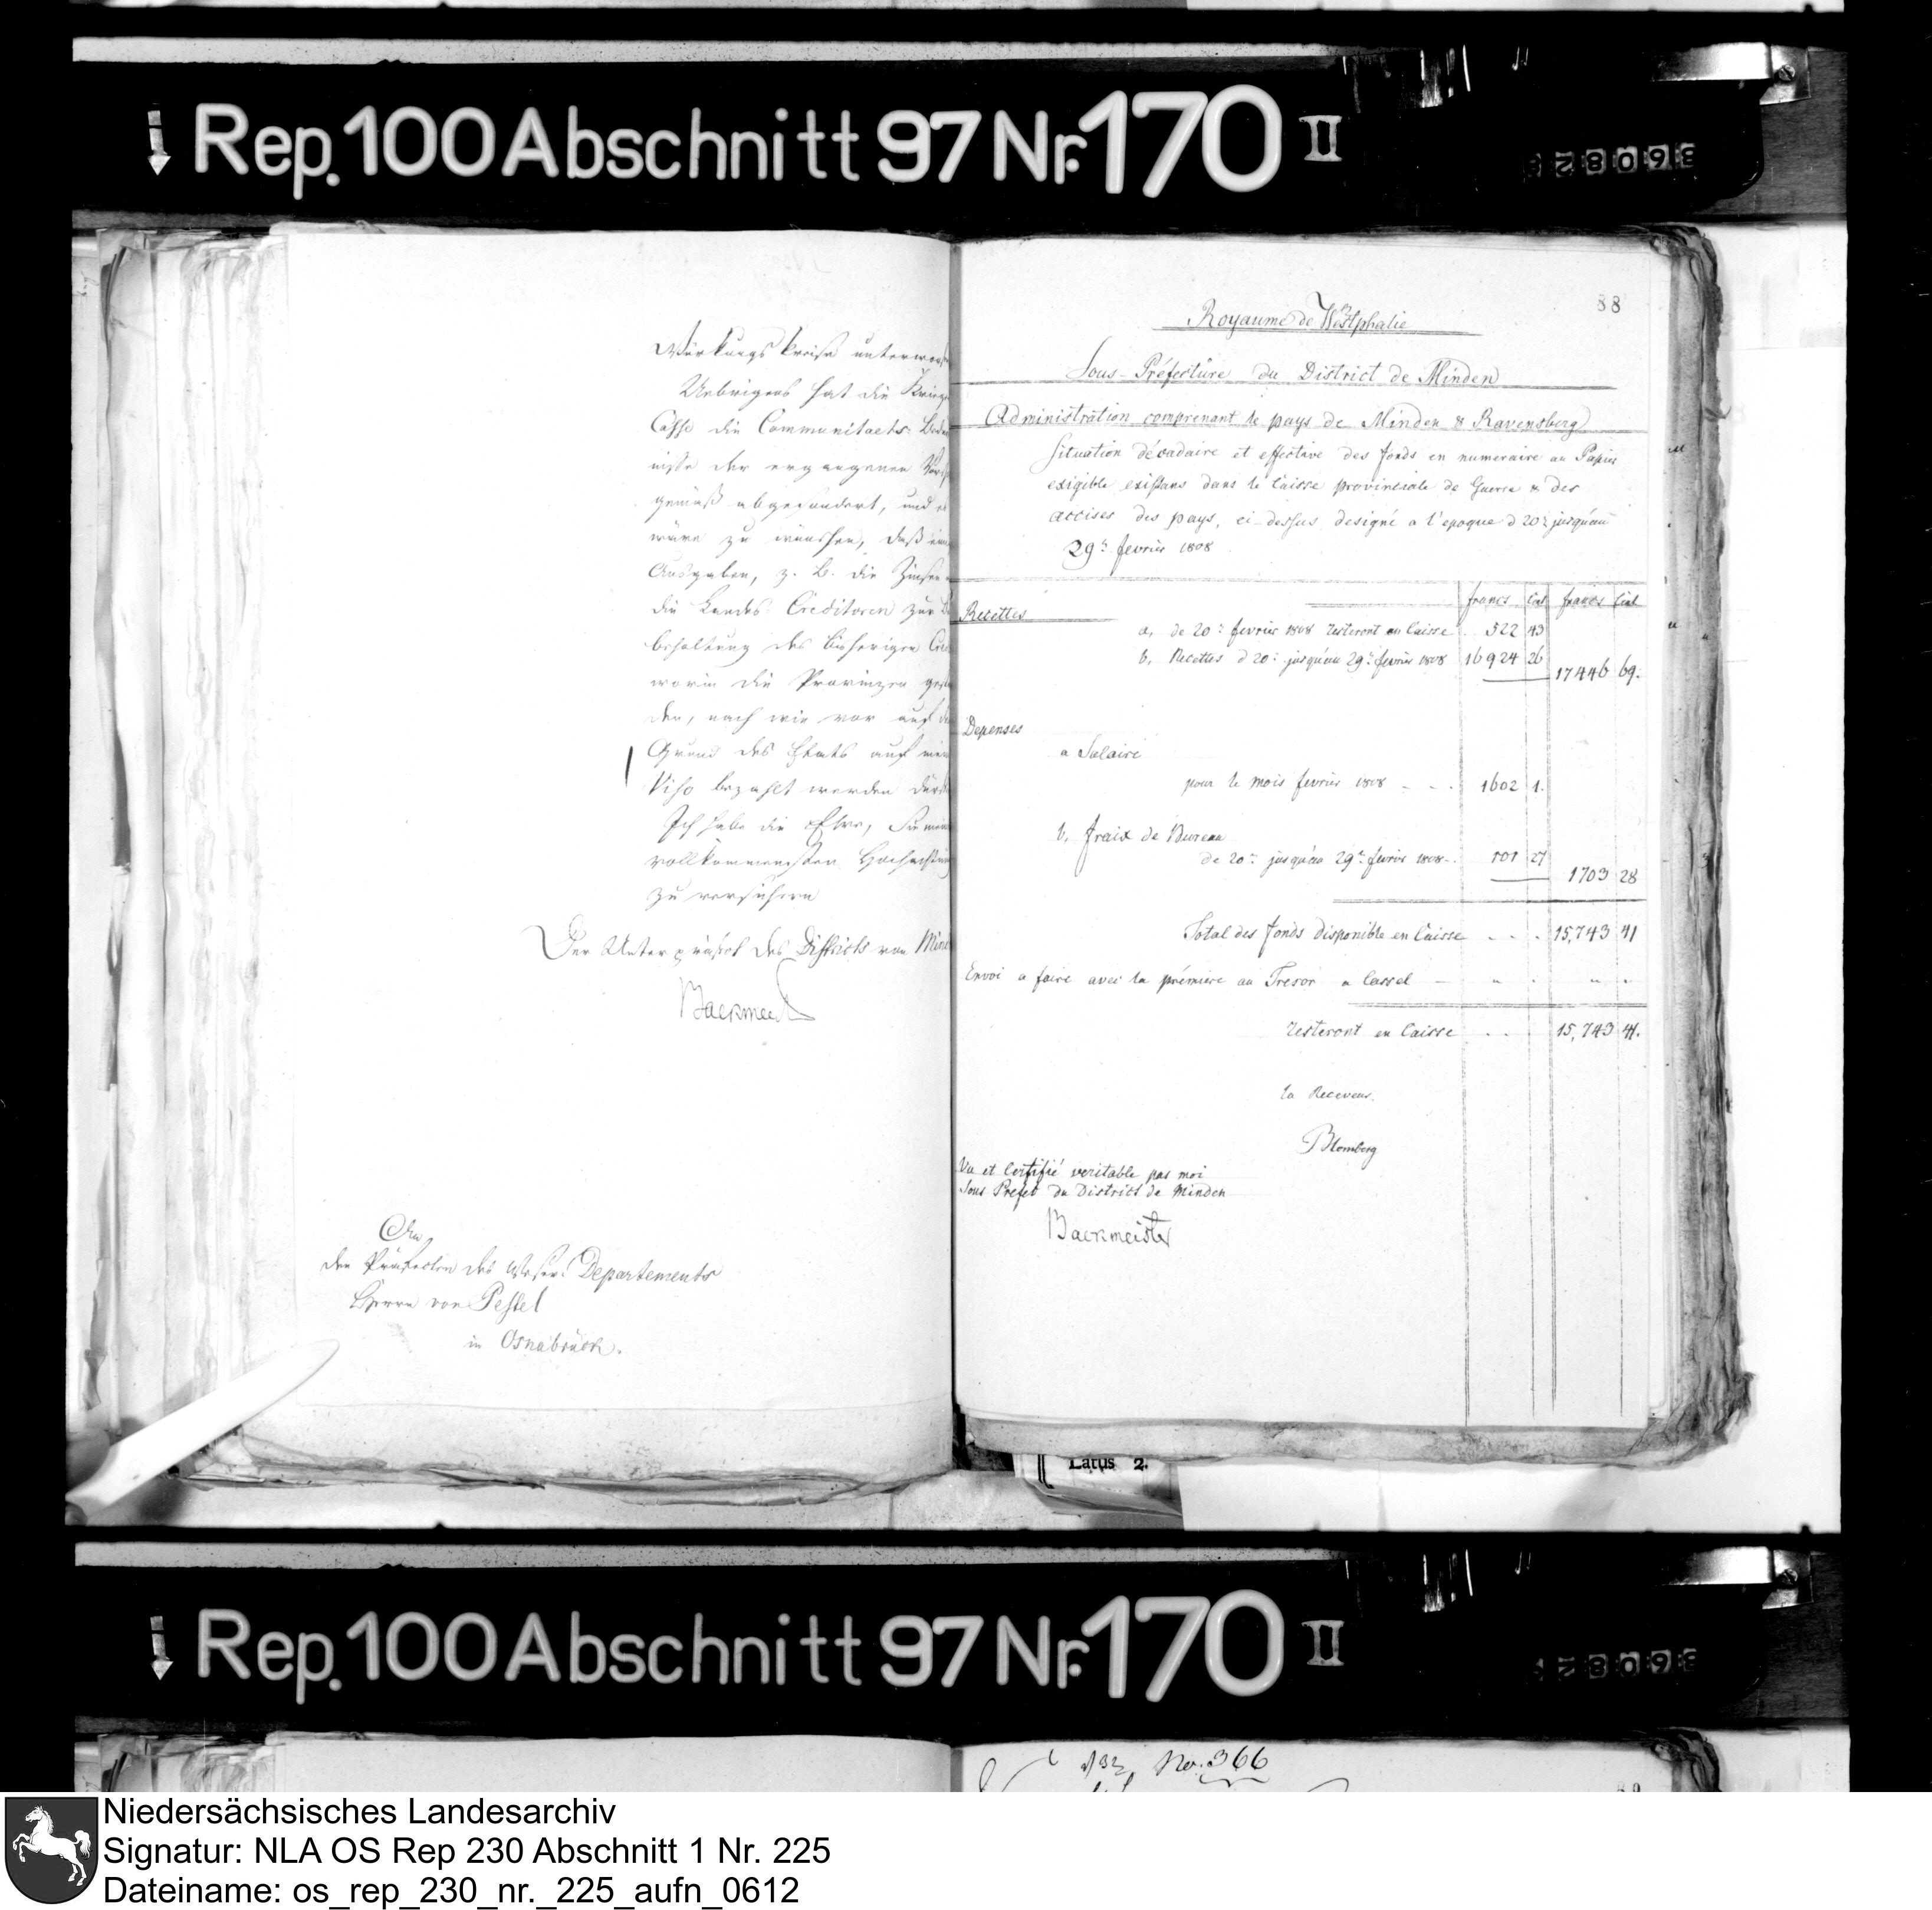 Rep. 100 Abschnitt 97 Nr. 170 II
360823
Würkungs kreise unterworfen
Uebrigens hat die Kriegs
Casse die Communitaets-
nisse der ergangenen
gemäß abgesondert, und es
wäre zu wünschen, daß
Ausgaben, z. B. die Zinsen
die Landes Creditoren zur
behaltung des bisherigen
worin die Provinzen
den, nach wie vor auf
Grund des Etats auf mein
Viso bezahlt werden
Ich habe die Ehre, Sie meiner
vollkommensten Hochachtung
zu versichern
Der Unterpräfect des Districts von Mind
Backmeist
An
den Präfecten des Weser-Departements
Herrn von Pestel
in Osnabrück.
88
Royaume de Westphalie
Sous-Préfecture du District de Minden
Administration comprenant le pays de Minden & Ravensberg
Situation décadaire et effective des fonds en numeraire au Papier
exigible existans dans le Caisse provinciale de Guerre & des
accises des pays, ci-dessus designé a l'epoque d 20: jusqu'au
29: fevrier 1808
francs Cent francs Cent
Recettes
a, de 20: fevrier 1808 resteront en Caisse . . 522 43
b, Recettes d 20: jusqu'au 29: fevrier 1808 16924 26
17446 69.
Depenses
a Salaire
pour le mois fevrier 1808 - . . 1602 1.
b, fraix de Bureau
de 20: jusqu'au 29: fevrier 1808 - . 101 27
1703 28
Total des fonds disponible en Caisse . . . 15,743 41
Envoi a faire avec la prémiere au Tresor a Cassel
resteront en Caisse . . 15,743 41.
la Receveur.
Blomberg
Vu et Certifié veritable pas moi
Sous Prefet du District de Minden
Backmeister
Latus 2.
Rep. 100 Abschnitt 97 Nr. 170 II
360824
No. 366
Niedersächsisches Landesarchiv
Signatur: NLA OS Rep 230 Abschnitt 1 Nr. 225
Dateiname: os_rep_230_nr._225_aufn_0612